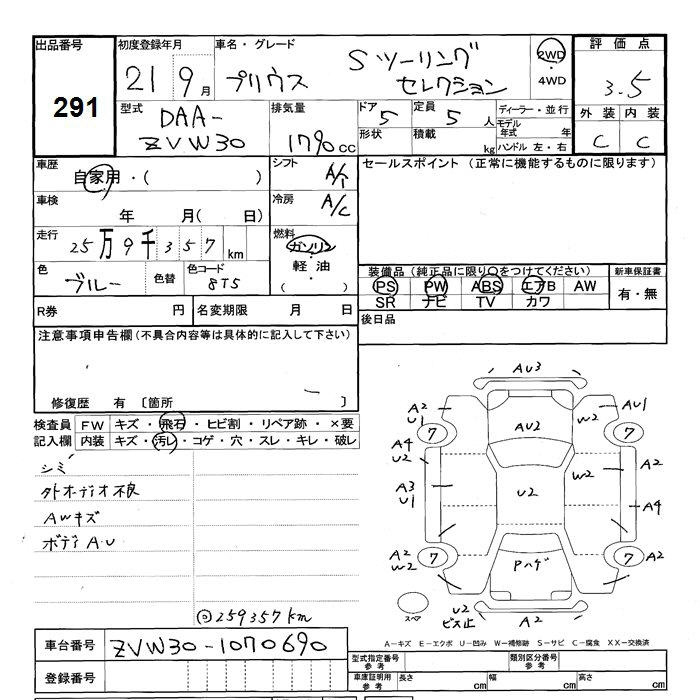 出品番号
291
初度登録年月
21 9月
車名・グレード
プリウス
Sツーリング
セレクション
2WD
・
4WD
評価点
3.5
外装 内装
C C
型式
DAA-
ZVW30
排気量
1790cc
ドア
5
定員
5人
ディーラー・並行
形状
積載
kg
モデル
年式 年
ハンドル 左・右
車歴
自家用・( )
シフト
A/T
セールスポイント (正常に機能するものに限ります)
車検
年 月( 日)
冷房
A/C
走行
25万9千357km
燃料
ガソリン
・
軽油
・
( )
色
ブルー
色替
色コード
8T5
装備品 (純正品に限り○をつけてください)
新車保証書
PS PW ABS エアB AW
SR ナビ TV カワ
有・無
R券 円
名変期限 月 日
後日品
注意事項申告欄 (不具合内容等は具体的に記入して下さい)
修復歴 有 〔箇所 ー 〕
検査員
記入欄
FW キズ・飛石・ヒビ割・リペア跡・×要
内装 キズ・汚レ・コゲ・穴・スレ・キレ・破レ
シミ
外オーディオ不良
AWキズ
ボディA.U
◎259357km
AU3
A2
U1
7
AU2
W2
AU1
7
A4
U2
W2
A2
A3
U1
U2
A4
A2
W2
7
Pハゲ
7
A2
スペア
U2
ビス止
A2
A-キズ E-エクボ U-凹み W-補修跡 S-サビ C-腐食 XX-交換済
車台番号
ZVW30-1070690
登録番号
型式指定番号
参考
類別区分番号
参考
車庫証明用
参考
長さ cm
幅 cm
高さ cm